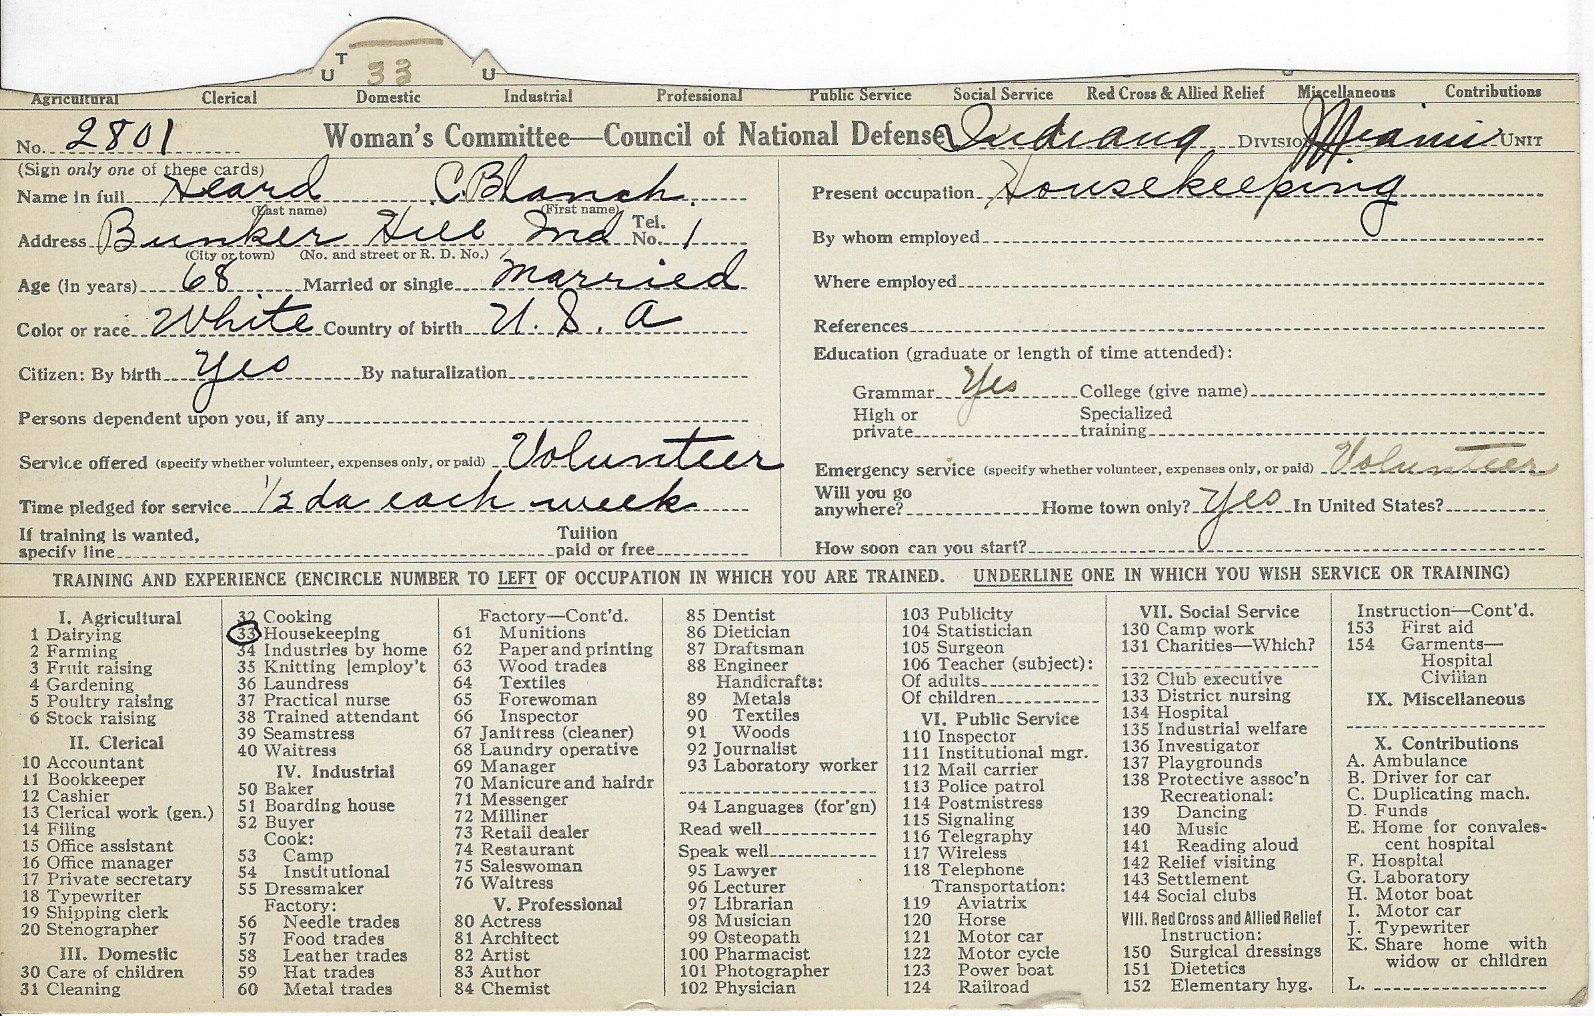 U T 33 U
Agricultural Clerical Domestic Industrial Professional Public Service Social Service Red Cross & Allied Relief Miscellaneous Contributions
No. 2801 Woman's Committee—Council of National Defense Indiana DIVISION Miami UNIT
(Sign only one of these cards)
Name in full Heard C. Blanch.
(Last name) (First name)
Address Bunker Hill Ind Tel. No. 1
(City or town) (No. and street or R. D. No.)
Age (in years) 68 Married or single Married
Color or race White Country of birth U. S. A
Citizen: By birth Yes By naturalization
Persons dependent upon you, if any
Service offered (specify whether volunteer, expenses only, or paid) Volunteer
Time pledged for service 1/2 da each week
If training is wanted,
specify line Tuition paid or free
Present occupation Housekeeping
By whom employed
Where employed
References
Education (graduate or length of time attended):
Grammar Yes College (give name)
High or private Specialized training
Emergency service (specify whether volunteer, expenses only, or paid) Volunteer
Will you go anywhere? Home town only? Yes In United States?
How soon can you start?
TRAINING AND EXPERIENCE (ENCIRCLE NUMBER TO LEFT OF OCCUPATION IN WHICH YOU ARE TRAINED. UNDERLINE ONE IN WHICH YOU WISH SERVICE OR TRAINING)
I. Agricultural
1 Dairying
2 Farming
3 Fruit raising
4 Gardening
5 Poultry raising
6 Stock raising
II. Clerical
10 Accountant
11 Bookkeeper
12 Cashier
13 Clerical work (gen.)
14 Filing
15 Office assistant
16 Office manager
17 Private secretary
18 Typewriter
19 Shipping clerk
20 Stenographer
III. Domestic
30 Care of children
31 Cleaning
32 Cooking
33 Housekeeping
34 Industries by home
35 Knitting [employ't
36 Laundress
37 Practical nurse
38 Trained attendant
39 Seamstress
40 Waitress
IV. Industrial
50 Baker
51 Boarding house
52 Buyer
Cook:
53 Camp
54 Institutional
55 Dressmaker
Factory:
56 Needle trades
57 Food trades
58 Leather trades
59 Hat trades
60 Metal trades
Factory—Cont'd.
61 Munitions
62 Paper and printing
63 Wood trades
64 Textiles
65 Forewoman
66 Inspector
67 Janitress (cleaner)
68 Laundry operative
69 Manager
70 Manicure and hairdr
71 Messenger
72 Milliner
73 Retail dealer
74 Restaurant
75 Saleswoman
76 Waitress
V. Professional
80 Actress
81 Architect
82 Artist
83 Author
84 Chemist
85 Dentist
86 Dietician
87 Draftsman
88 Engineer
Handicrafts:
89 Metals
90 Textiles
91 Woods
92 Journalist
93 Laboratory worker
94 Languages (for'gn)
Read well
Speak well
95 Lawyer
96 Lecturer
97 Librarian
98 Musician
99 Osteopath
100 Pharmacist
101 Photographer
102 Physician
103 Publicity
104 Statistician
105 Surgeon
106 Teacher (subject):
Of adults
Of children
VI. Public Service
110 Inspector
111 Institutional mgr.
112 Mail carrier
113 Police patrol
114 Postmistress
115 Signaling
116 Telegraphy
117 Wireless
118 Telephone
Transportation:
119 Aviatrix
120 Horse
121 Motor car
122 Motor cycle
123 Power boat
124 Railroad
VII. Social Service
130 Camp work
131 Charities—Which?
132 Club executive
133 District nursing
134 Hospital
135 Industrial welfare
136 Investigator
137 Playgrounds
138 Protective assoc'n
Recreational:
139 Dancing
140 Music
141 Reading aloud
142 Relief visiting
143 Settlement
144 Social clubs
VIII. Red Cross and Allied Relief
Instruction:
150 Surgical dressings
151 Dietetics
152 Elementary hyg.
Instruction—Cont'd.
153 First aid
154 Garments—
Hospital
Civilian
IX. Miscellaneous
X. Contributions
A. Ambulance
B. Driver for car
C. Duplicating mach.
D. Funds
E. Home for convales-
cent hospital
F. Hospital
G. Laboratory
H. Motor boat
I. Motor car
J. Typewriter
K. Share home with
widow or children
L.